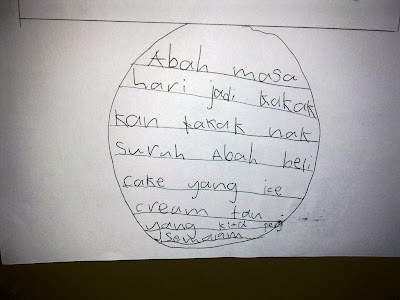 Abah masa
hari jadi kakak
kan kakak nak
suruh Abah beli
cake yang ice
cream tau
yang kita pergi
semalam